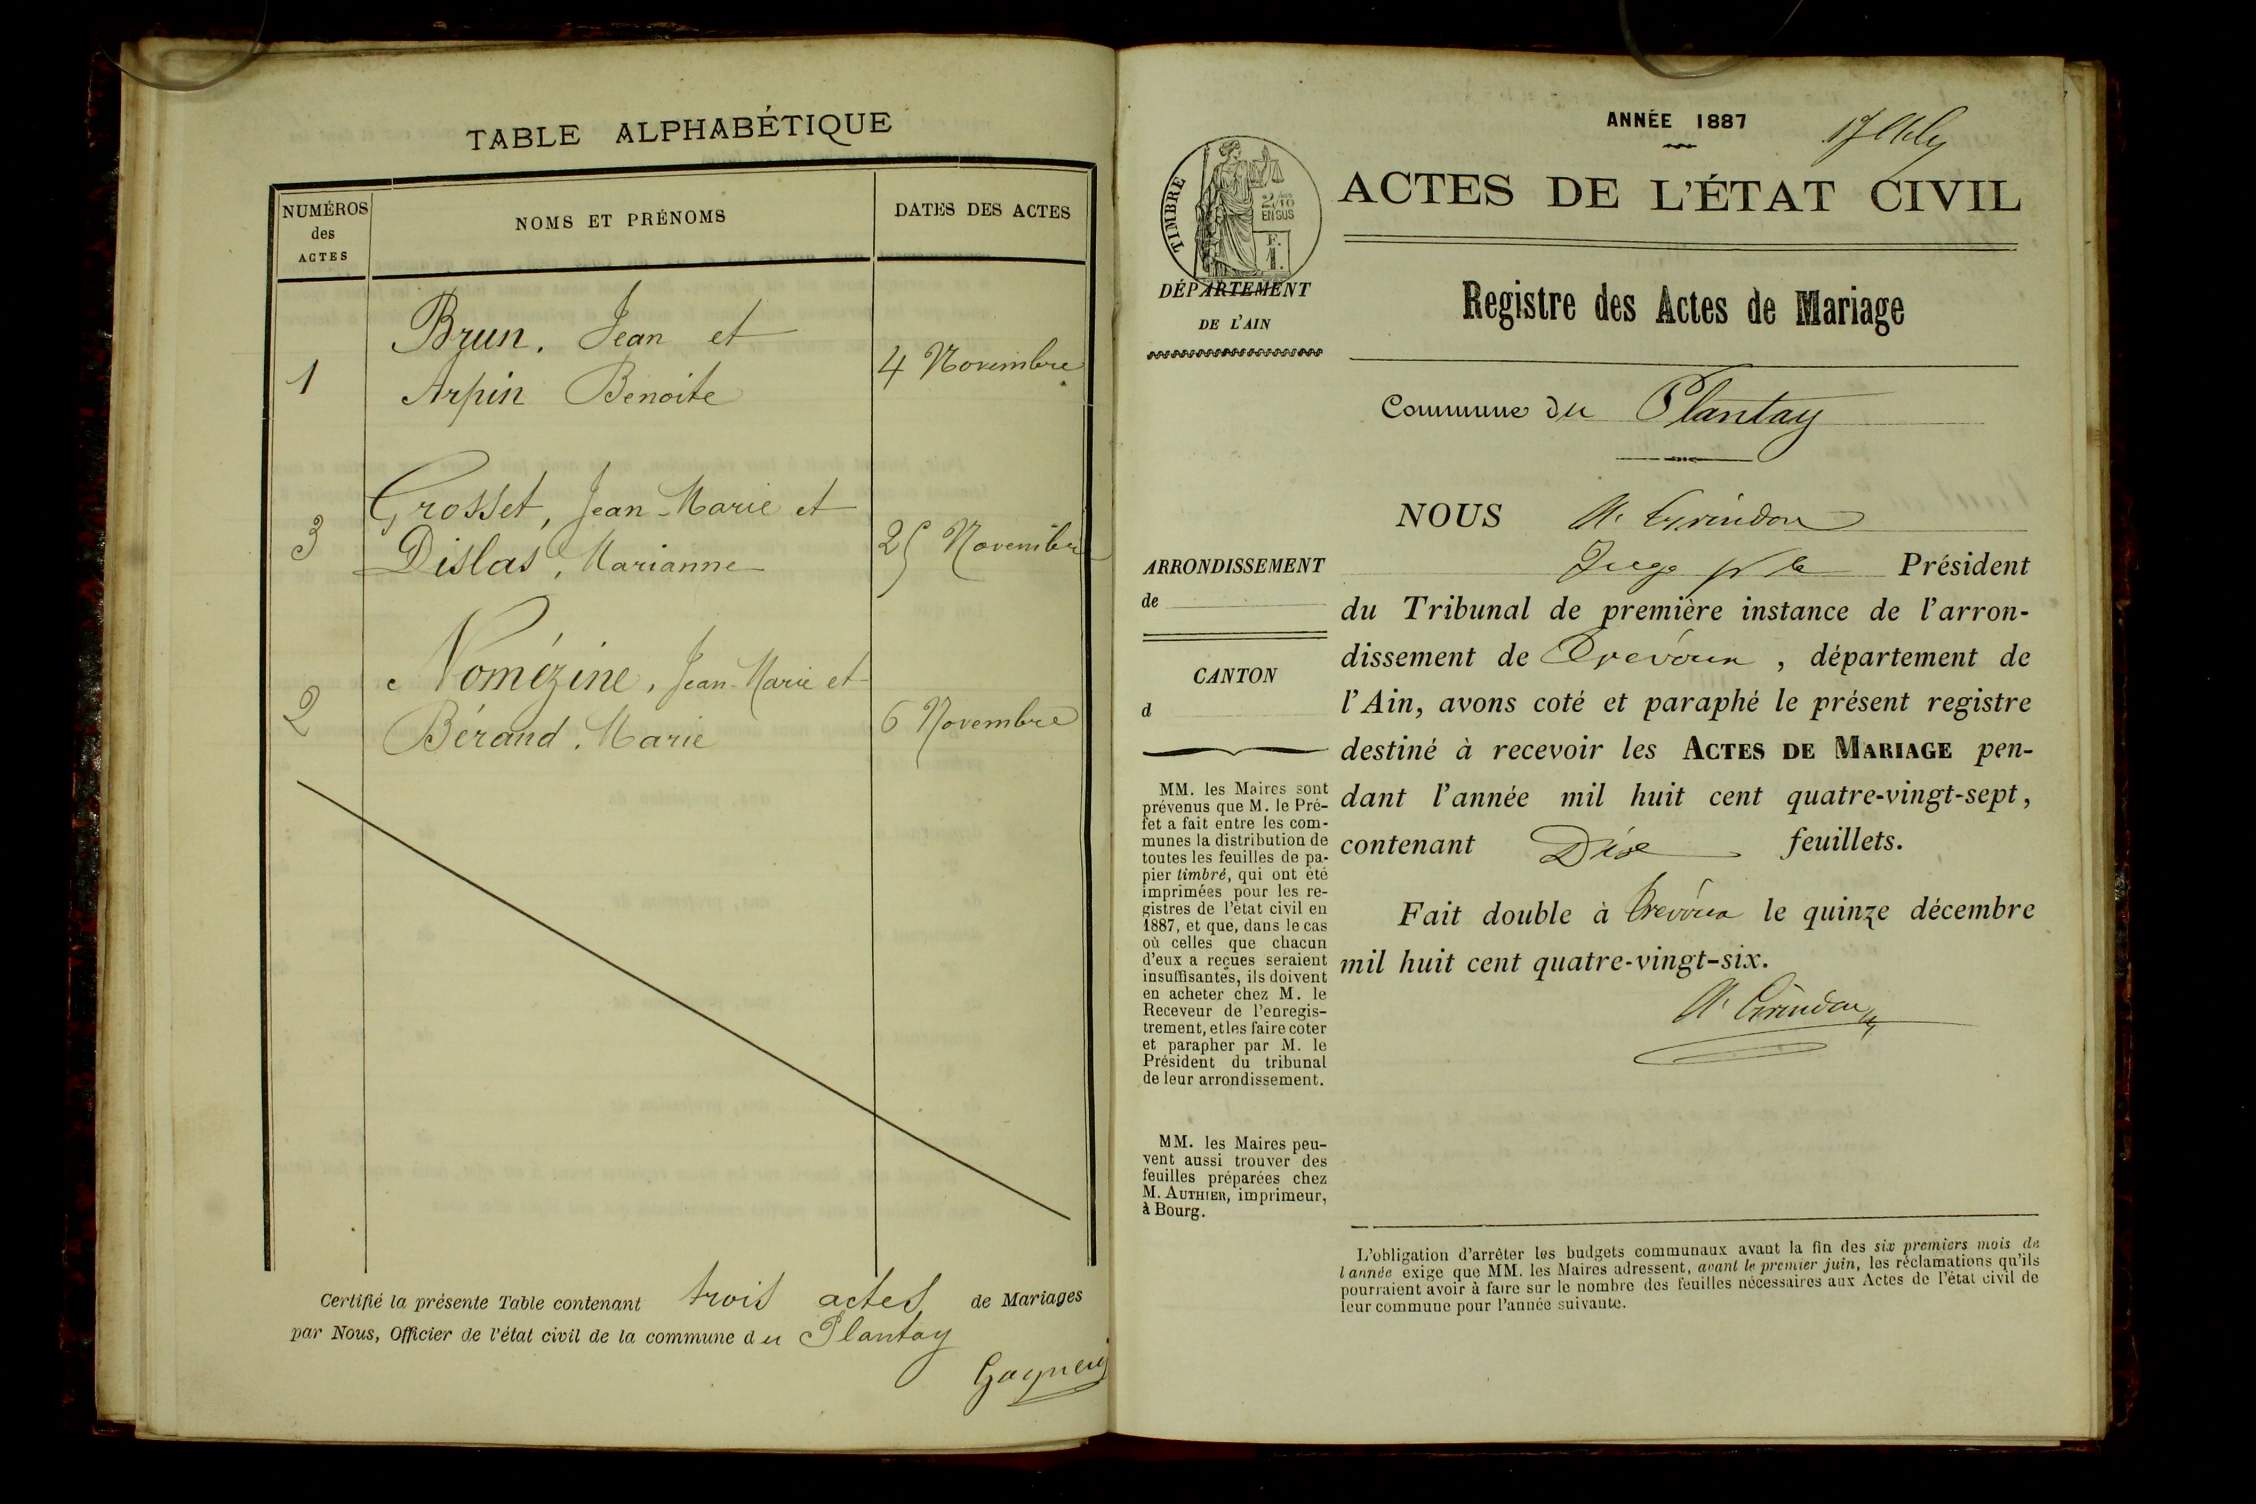 TABLE ALPHABÉTIQUE
NUMÉROS
des
ACTES
NOMS ET PRÉNOMS
DATES DES ACTES
1
Brun, Jean et
Arpin Benoite
4 Novembre
3
Grosset, Jean-Marie et
Dislas, Marianne
25 Novembre
2
Nomézine, Jean-Marie et
Béraud, Marie
6 Novembre
Certifié la présente Table contenant trois actes de Mariages
par Nous, Officier de l'état civil de la commune du Plantay
ANNÉE 1887
ACTES DE L'ÉTAT CIVIL
TIMBRE
2/10
EN SUS
F.
1.
DÉPARTEMENT
DE L'AIN
Registre des Actes de Mariage
Commune du Plantay
NOUS
Juge Président
du Tribunal de première instance de l'arron-
dissement de Trévoux, département de
l'Ain, avons coté et paraphé le présent registre
destiné à recevoir les ACTES DE MARIAGE pen-
dant l'année mil huit cent quatre-vingt-sept,
contenant feuillets.
Fait double à Trévoux le quinze décembre
mil huit cent quatre-vingt-six.
ARRONDISSEMENT
de
CANTON
d
MM. les Maires sont
prévenus que M. le Pré-
fet a fait entre les com-
munes la distribution de
toutes les feuilles de pa-
pier timbré, qui ont été
imprimées pour les re-
gistres de l'état civil en
1887, et que, dans le cas
où celles que chacun
d'eux a reçues seraient
insuffisantes, ils doivent
en acheter chez M. le
Receveur de l'enregis-
trement, et les faire coter
et parapher par M. le
Président du tribunal
de leur arrondissement.
MM. les Maires peu-
vent aussi trouver des
feuilles préparées chez
M. AUTHIER, imprimeur,
à Bourg.
L'obligation d'arrêter les budgets communaux avant la fin des six premiers mois de
l'année exige que MM. les Maires adressent, avant le premier juin, les réclamations qu'ils
pourraient avoir à faire sur le nombre des feuilles nécessaires aux Actes de l'état civil de
leur commune pour l'année suivante.